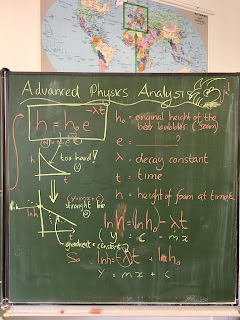 Advanced Physics Analysis
h = h₀e^-λt
h₀ = original height of the
beer bubbles
e = ?
λ = decay constant
t = time
h = height of foam at time t
h
too hard!
t
(y=mx+c)
straight line
ln h
t
gradient = constant
ln h = (ln h₀) - λt
y = c - mx
So ln h = -λt + ln h₀
y = mx + c